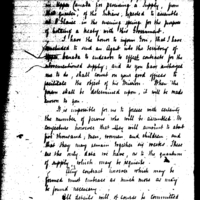 Upper Canada for procuring a supply, from
that quarter, of the Indians, expected to assemble
at P. Island in the ensuing spring for the purpose
of holding a treaty with this Government.
I have the honor to inform You, that I have
concluded to send an Agent into the territory of
Upper Canada to endeavor to effect contracts for the
abovementioned supply, and as you have emboldened
me to do, shall count on your good offices to
facilitate the object of his mission. When the
person shall be determined upon, it will be made
known to you.
It is impossible for me to foresee with certainty
the number of persons who will be assembled. We
conjecture however that they will amount to about
hundred, men, women and children, and
that they may remain together six weeks. These
are the only data we have, as to the quantum
of supply which may be requisite.
Any contract however which may be
formed must embrace as much more as may
be found necessary.
All details will, of course be committed